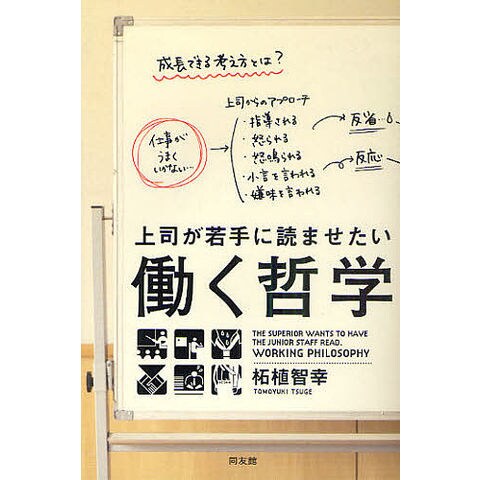 成長できる考え方とは?
上司からのアプローチ
・指導される
・怒られる
・怒鳴られる
・小言を言われる
・嫌味を言われる
仕事が
うまく
いかない…
反省…
反応
上司が若手に読ませたい
働く哲学
THE SUPERIOR WANTS TO HAVE
THE JUNIOR STAFF READ.
WORKING PHILOSOPHY
柘植智幸
TOMOYUKI TSUGE
同友館